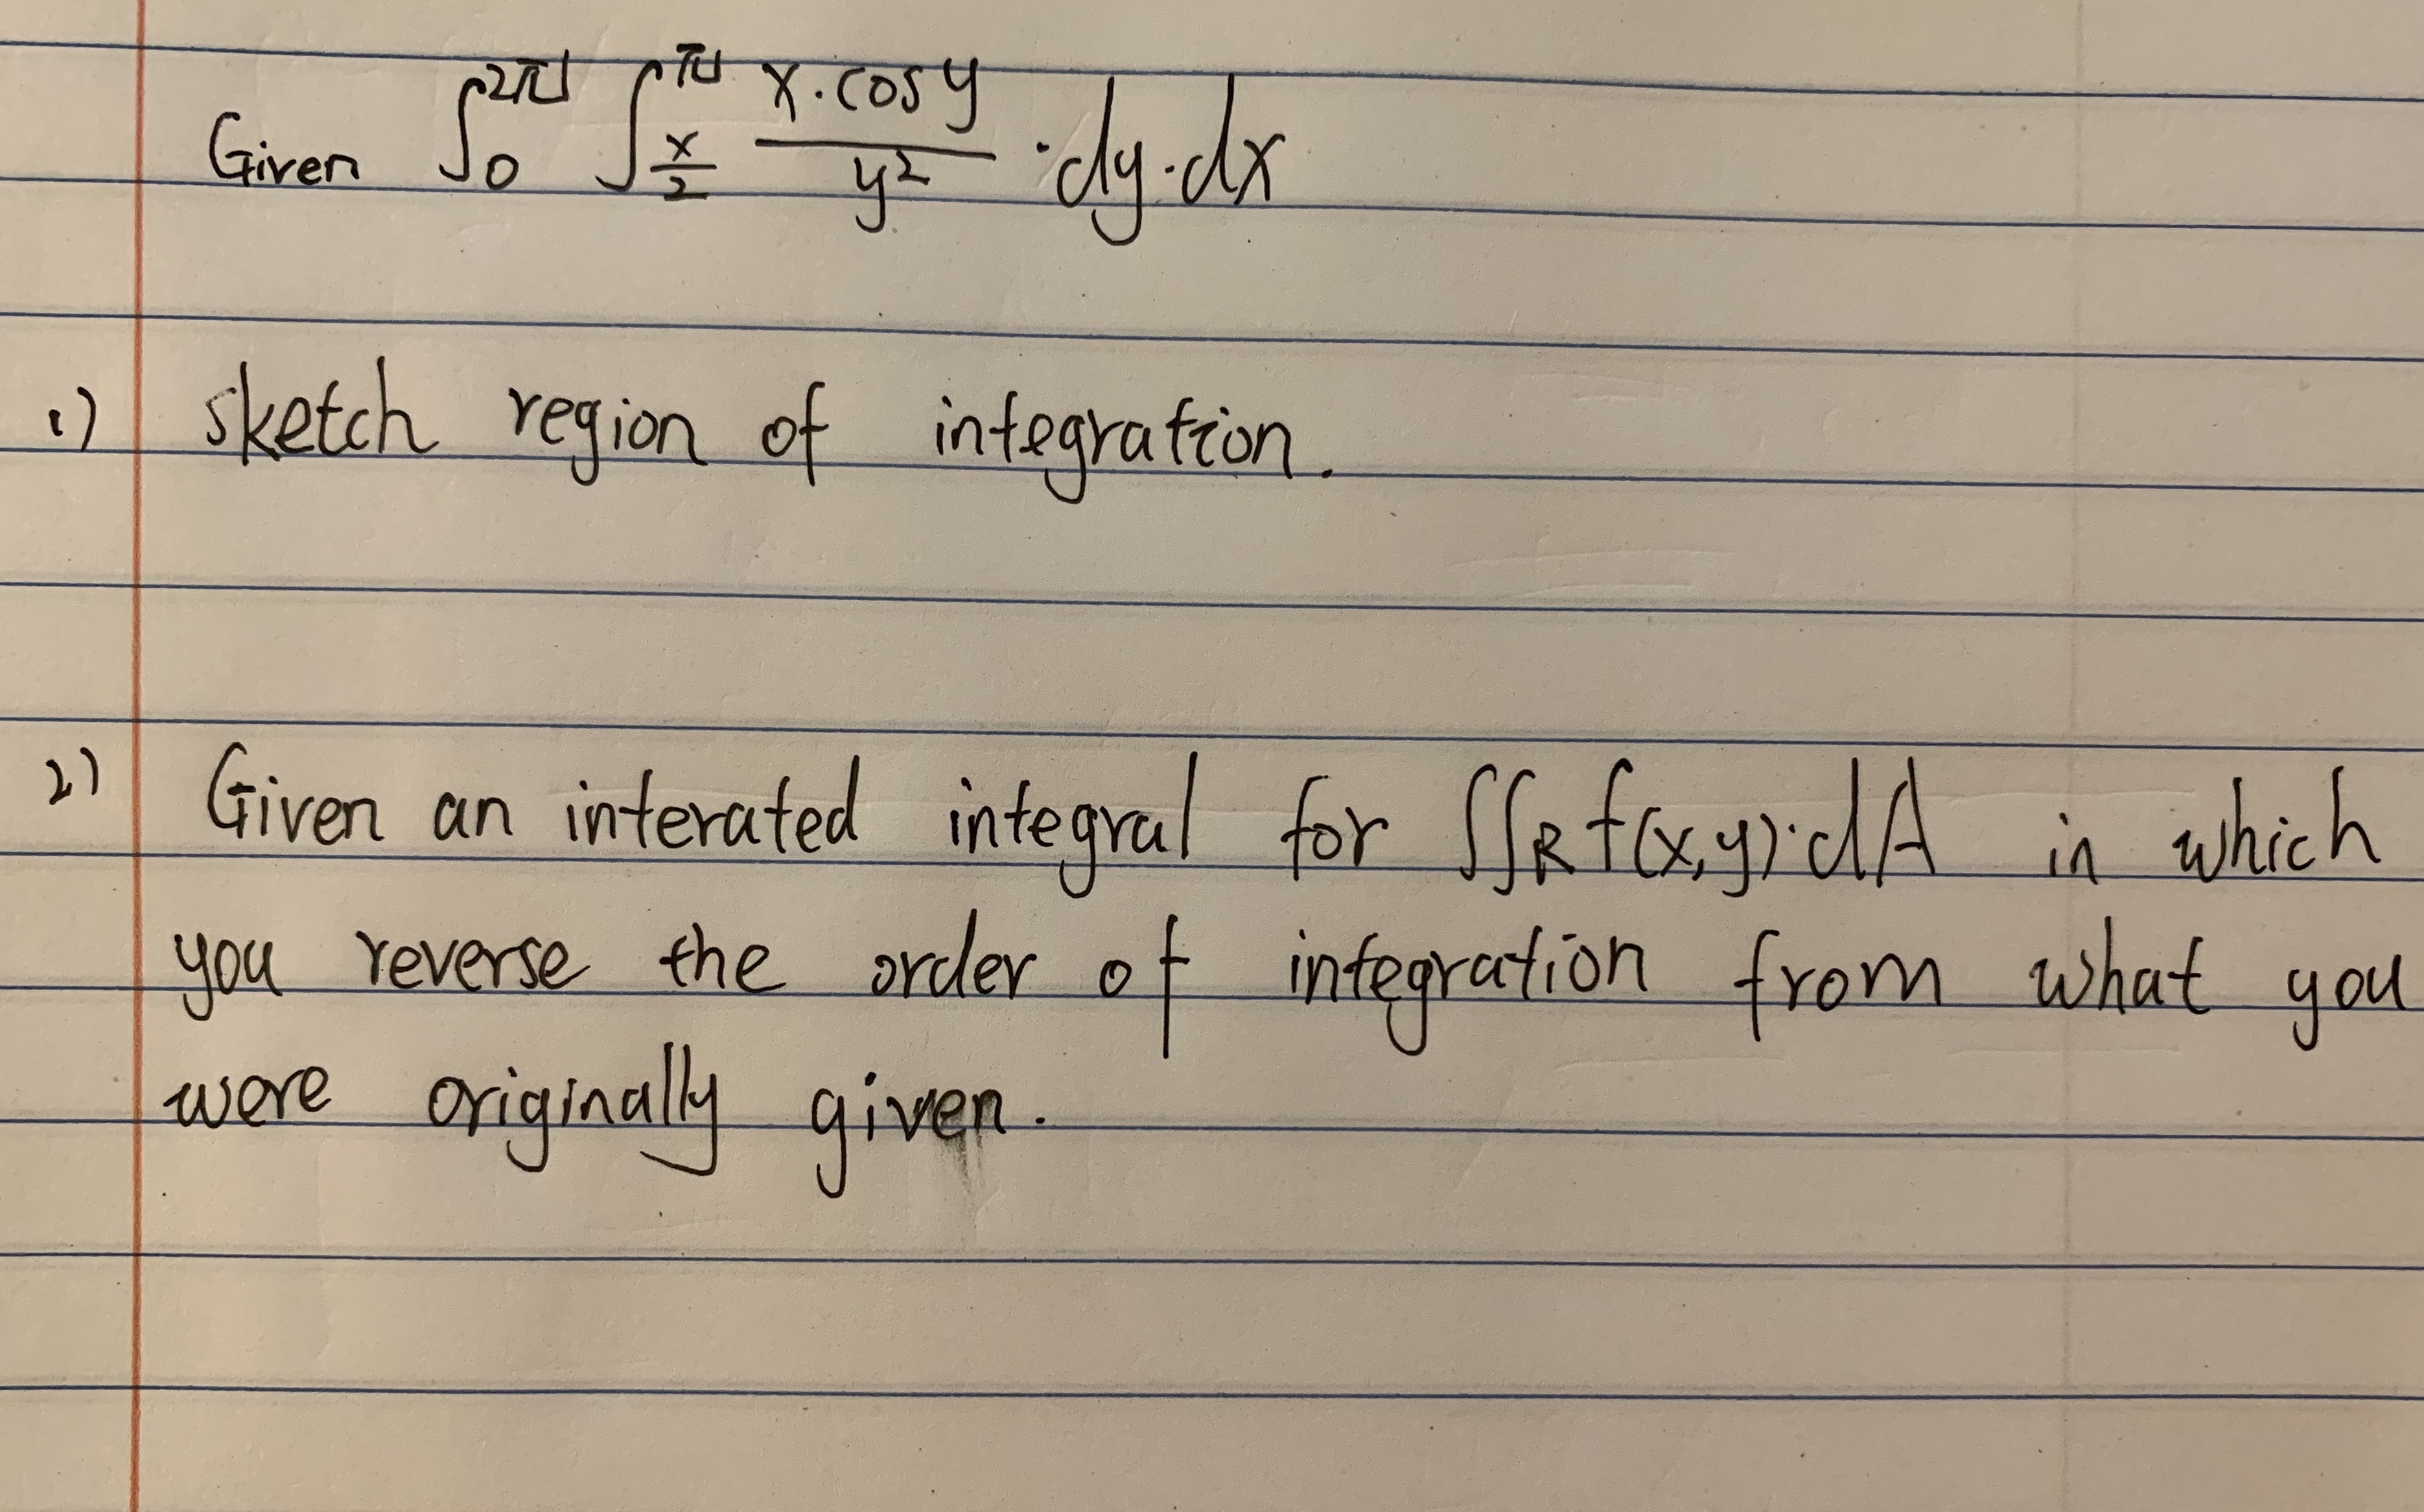 Given ∫₀^{2π} ∫_{x/2}^{π} \frac{x·cosy}{y²} ·dy·dx
1) sketch region of integration.
2) Given an interated integral for ∬_R f(x,y)·dA in which
you reverse the order of integration from what you
were originally given.